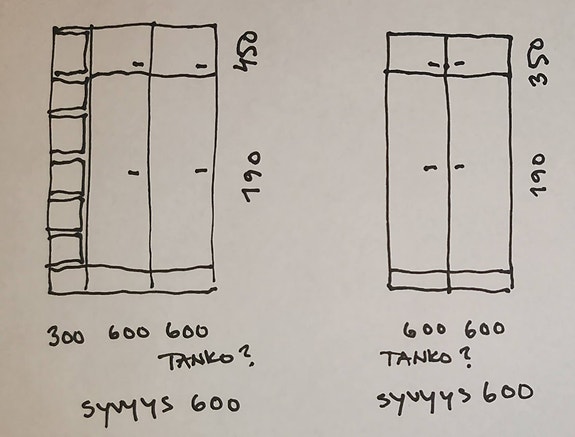 450
190
300 600 600
TANKO?
SYVYYS 600
350
190
600 600
TANKO?
SYVYYS 600